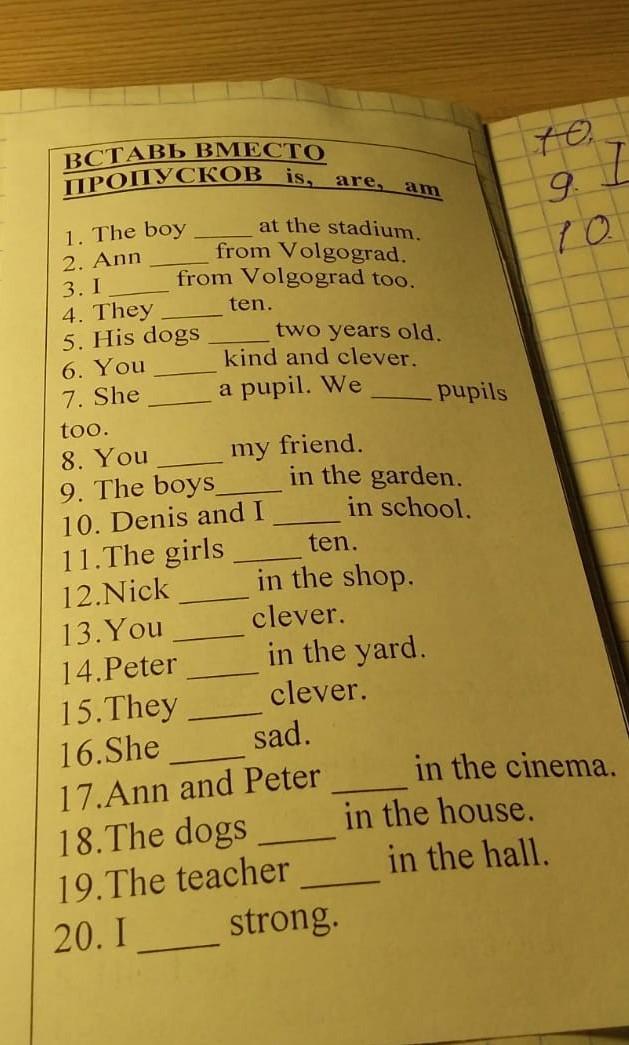 ВСТАВЬ ВМЕСТО
ПРОПУСКОВ is, are, am
1. The boy _____ at the stadium.
2. Ann _____ from Volgograd.
3. I _____ from Volgograd too.
4. They _____ ten.
5. His dogs _____ two years old.
6. You _____ kind and clever.
7. She _____ a pupil. We _____ pupils
too.
8. You _____ my friend.
9. The boys_____ in the garden.
10. Denis and I _____ in school.
11.The girls _____ ten.
12.Nick _____ in the shop.
13.You _____ clever.
14.Peter _____ in the yard.
15.They _____ clever.
16.She _____ sad.
17.Ann and Peter _____ in the cinema.
18.The dogs _____ in the house.
19.The teacher _____ in the hall.
20. I _____ strong.
9. I
10.